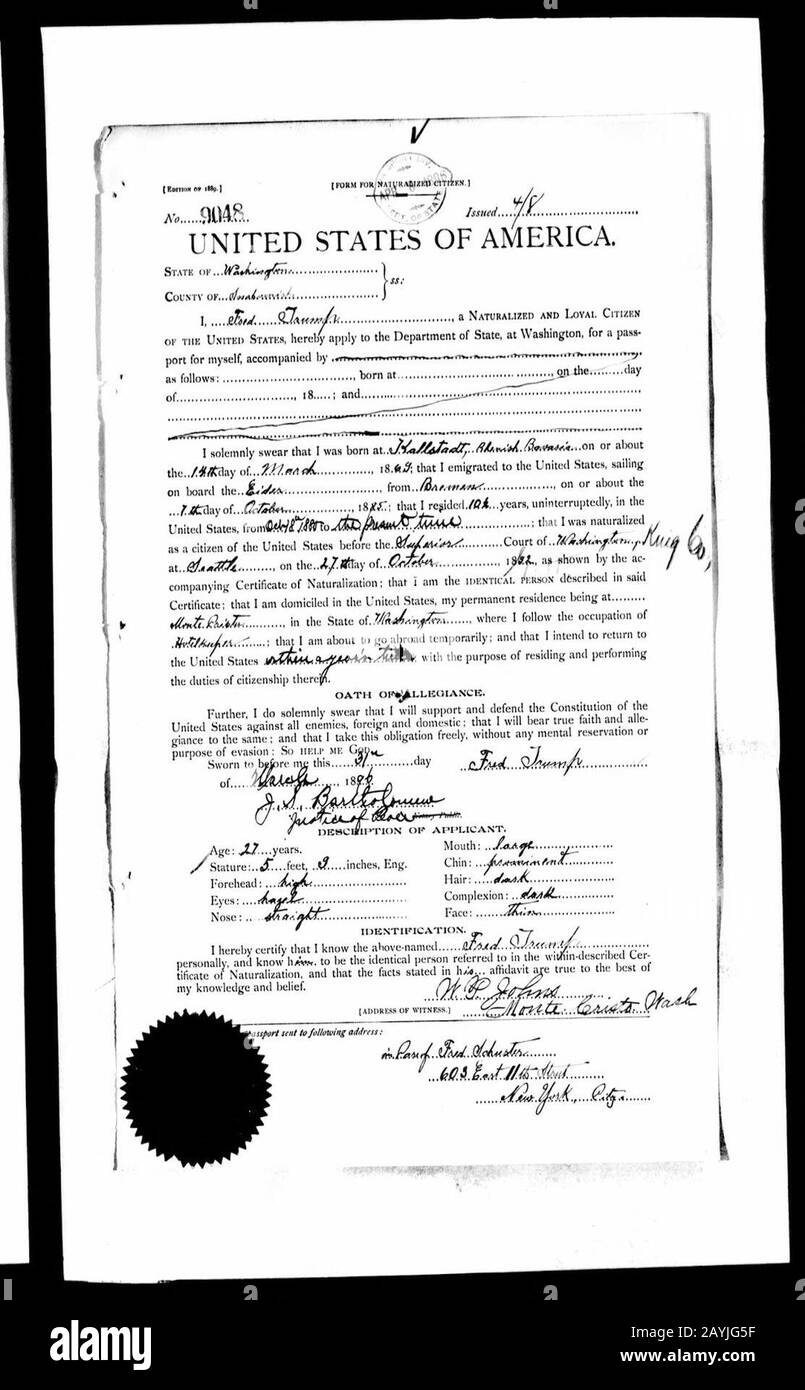 [EDITION OF 1889.]
[FORM FOR NATURALIZED CITIZEN.]
No. 9048
Issued 4/8
UNITED STATES OF AMERICA.
STATE OF Washington
COUNTY OF ss:
I, Fred Trump, a NATURALIZED AND LOYAL CITIZEN
OF THE UNITED STATES, hereby apply to the Department of State, at Washington, for a pass-
port for myself, accompanied by
as follows: , born at , on the day
of , 18 ; and
I solemnly swear that I was born at Kallstadt, Rhenish Bavaria on or about
the 14th day of March, 1869; that I emigrated to the United States, sailing
on board the Eider, from Bremen, on or about the
7th day of October, 1885; that I resided 10½ years, uninterruptedly, in the
United States, from to the present time; that I was naturalized
as a citizen of the United States before the Superior Court of Washington, King Co,
at Seattle, on the 27th day of October, 1892, as shown by the ac-
companying Certificate of Naturalization; that I am the IDENTICAL PERSON described in said
Certificate; that I am domiciled in the United States, my permanent residence being at
Monte Cristo, in the State of Washington, where I follow the occupation of
Hotelkeeper; that I am about to go abroad temporarily; and that I intend to return to
the United States within a year's time with the purpose of residing and performing
the duties of citizenship therein.
OATH OF ALLEGIANCE.
Further, I do solemnly swear that I will support and defend the Constitution of the
United States against all enemies, foreign and domestic; that I will bear true faith and alle-
giance to the same; and that I take this obligation freely, without any mental reservation or
purpose of evasion: SO HELP ME GOD.
Sworn to before me this 31 day
Fred Trump
of March, 1896
J. S. Bartholomew
Justice of Peace
DESCRIPTION OF APPLICANT.
Age: 27 years.
Mouth: large
Stature: 5 feet, 9 inches, Eng.
Chin: prominent
Forehead: high
Hair: dark
Eyes: hazel
Complexion: dark
Nose: straight
Face: thin
IDENTIFICATION.
I hereby certify that I know the above-named Fred Trump
personally, and know him to be the identical person referred to in the within-described Cer-
tificate of Naturalization, and that the facts stated in his affidavit are true to the best of
my knowledge and belief.
W. P. Johns
[ADDRESS OF WITNESS.] Monte Cristo Wash
passport sent to following address:
Fred Schuster
603 East 11th Street
New York, City
alamy
Image ID: 2AYJG5F
www.alamy.com